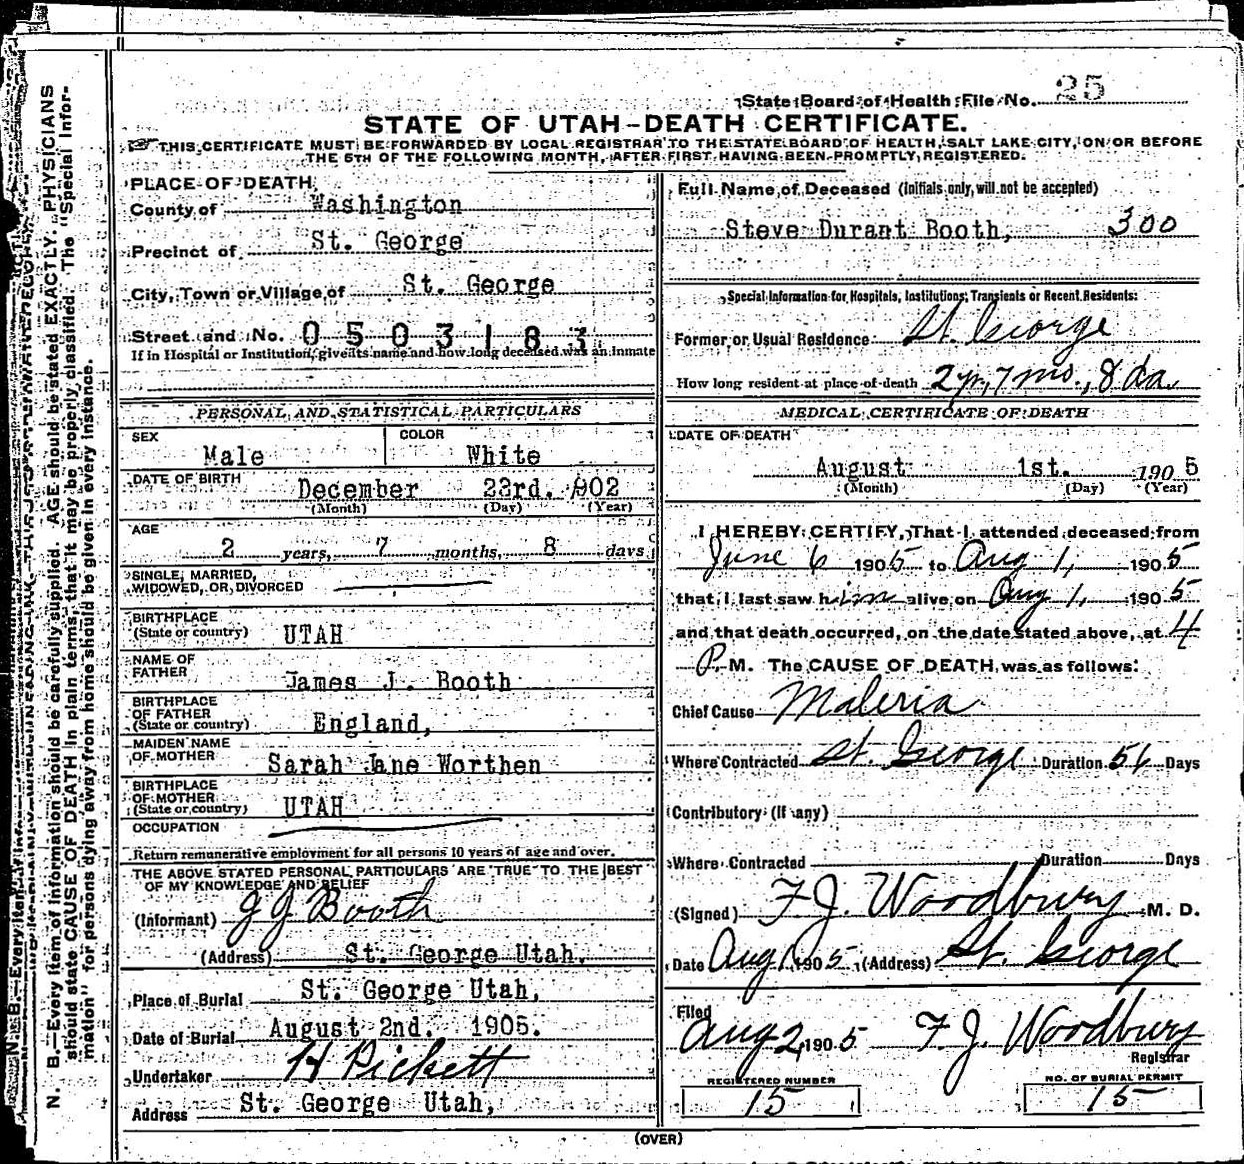 State Board of Health File No. 25
STATE OF UTAH-DEATH CERTIFICATE.
THIS CERTIFICATE MUST BE FORWARDED BY LOCAL REGISTRAR TO THE STATE BOARD OF HEALTH, SALT LAKE CITY, ON OR BEFORE
THE 5TH OF THE FOLLOWING MONTH, AFTER FIRST HAVING BEEN PROMPTLY REGISTERED.
PLACE OF DEATH,
County of Washington
Precinct of St. George
City, Town or Village of St. George
Street and No. 0503183
If in Hospital or Institution, give its name and how long deceased was an inmate
PERSONAL AND STATISTICAL PARTICULARS
SEX Male COLOR White
DATE OF BIRTH December 23rd. 902
(Month) (Day) (Year)
AGE 2 years, 7 months, 8 days
SINGLE, MARRIED,
WIDOWED, OR, DIVORCED
BIRTHPLACE
(State or country) UTAH
NAME OF
FATHER James J. Booth
BIRTHPLACE
OF FATHER
(State or country) England,
MAIDEN NAME
OF MOTHER Sarah Jane Worthen
BIRTHPLACE
OF MOTHER
(State or country) UTAH
OCCUPATION
Return remunerative employment for all persons 10 years of age and over.
THE ABOVE STATED PERSONAL PARTICULARS ARE TRUE TO THE BEST
OF MY KNOWLEDGE AND BELIEF
(Informant) J J Booth
(Address) St. George Utah.
Place of Burial St. George Utah,
Date of Burial August 2nd. 1905.
Undertaker H Pickett
Address St. George Utah,
Full Name of Deceased (Initials only, will not be accepted)
Steve Durant Booth, 300
Special Information for Hospitals, Institutions, Transients or Recent Residents:
Former or Usual Residence St. George
How long resident at place of death 2 yr, 7 mo., 8 da.
MEDICAL CERTIFICATE OF DEATH
DATE OF DEATH
August 1st. 1905
(Month) (Day) (Year)
I HEREBY CERTIFY, That I attended deceased from
June 6 1905 to Aug 1, 1905
that I last saw him alive on Aug 1, 1905
and that death occurred, on the date stated above, at 4
P. M. The CAUSE OF DEATH was as follows:
Chief Cause Maleria
Where Contracted St. George Duration 56 Days
Contributory (if any)
Where Contracted Duration Days
(Signed) F. J. Woodbury M. D.
Date Aug 1, 1905 (Address) St. George
Filed
Aug 2, 1905 F. J. Woodbury
Registrar
REGISTERED NUMBER
15
NO. OF BURIAL PERMIT
15
(OVER)
N. B.—Every item of information should be carefully supplied. AGE should be stated EXACTLY. PHYSICIANS
should state CAUSE OF DEATH in plain terms, that it may be properly classified. The "Special Infor-
mation" for persons dying away from home should be given in every instance.